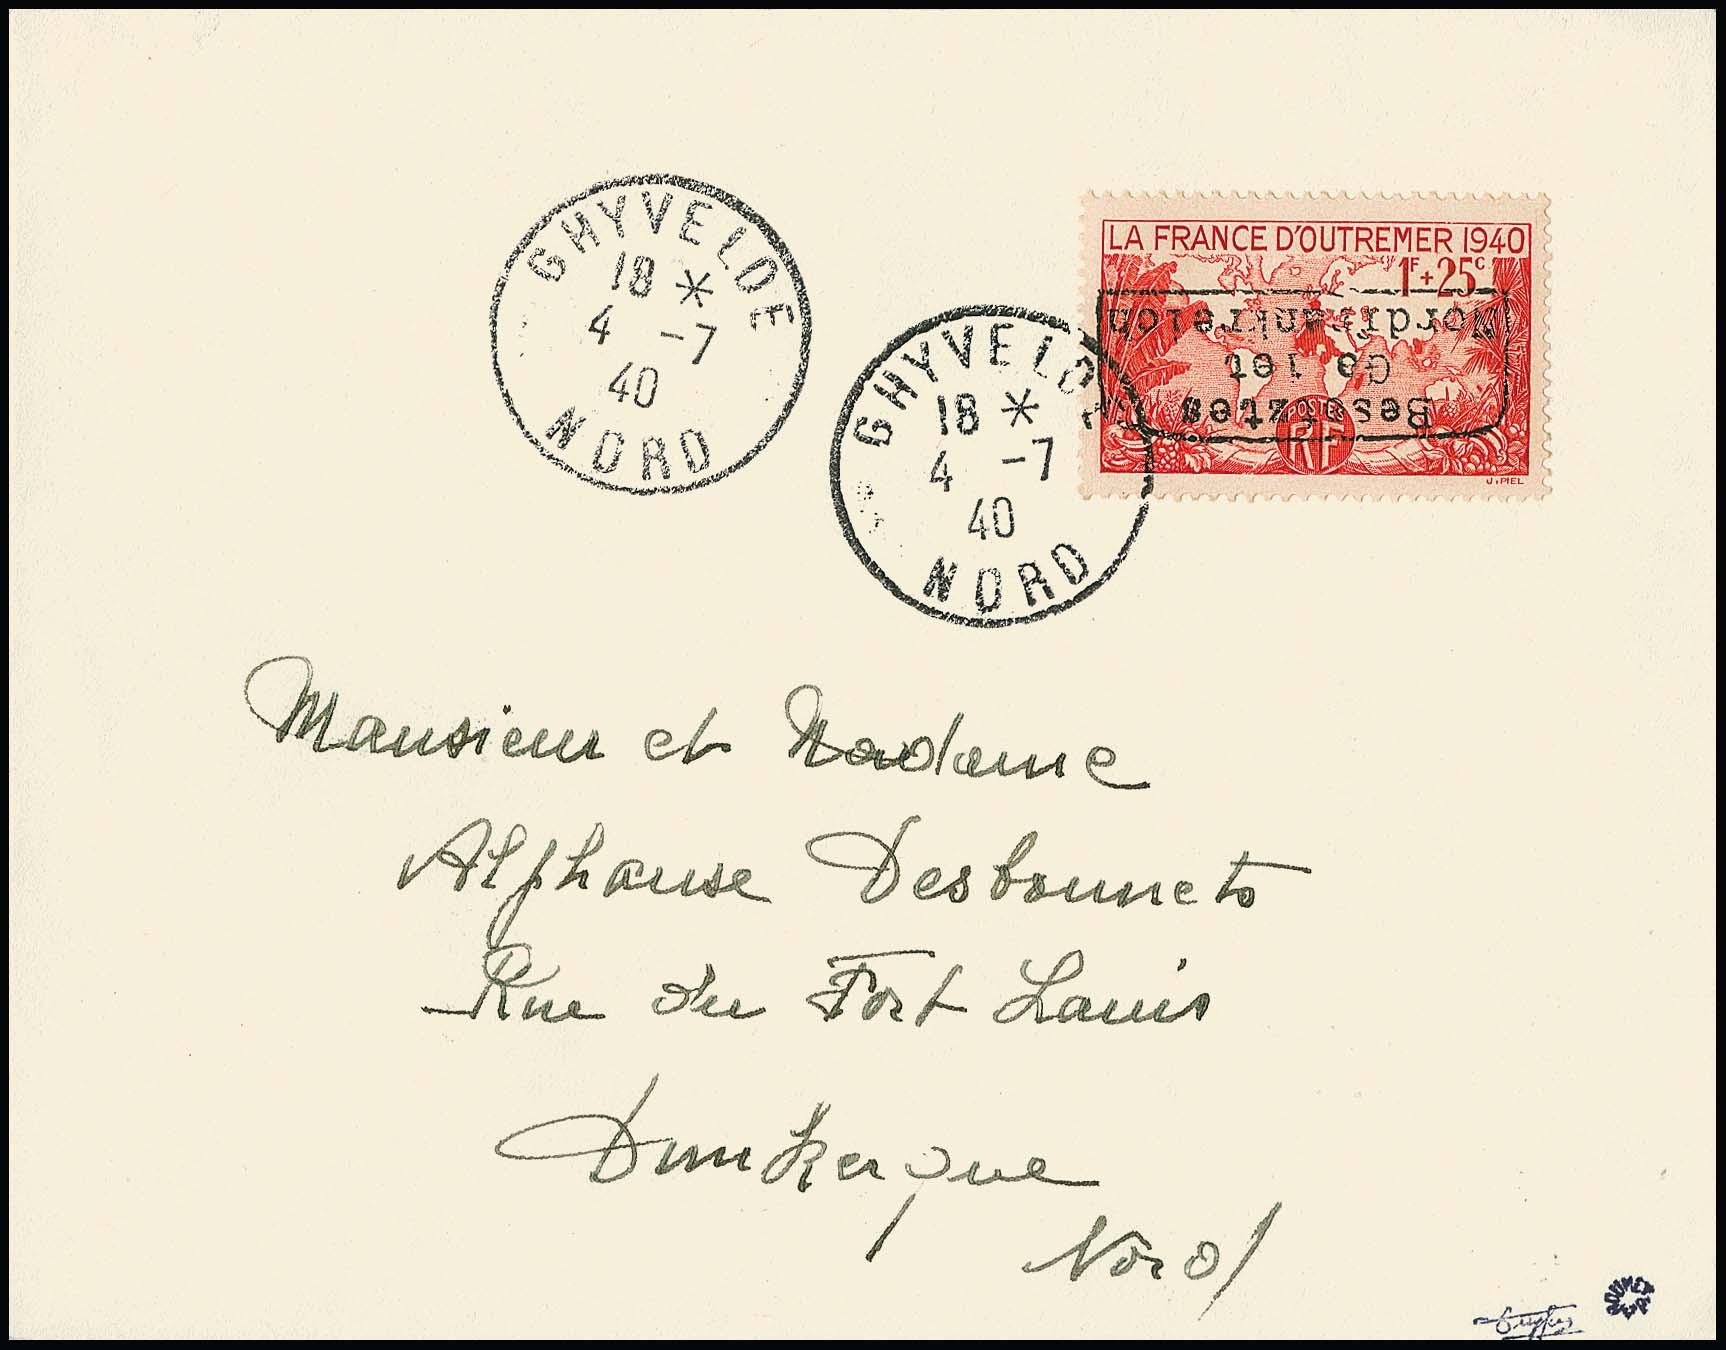 GHYVELDE
18 *
4 -7
40
NORD
GHYVELDE
18 *
4 -7
40
NORD
LA FRANCE D'OUTREMER 1940
1F + 25C
Besetztes
Gebiet
Nordfrankreich
POSTES
RF
J. PIEL
Monsieur et Madame
Alphonse Desbonnets
Rue du Fort Louis
Dunkerque
Nord